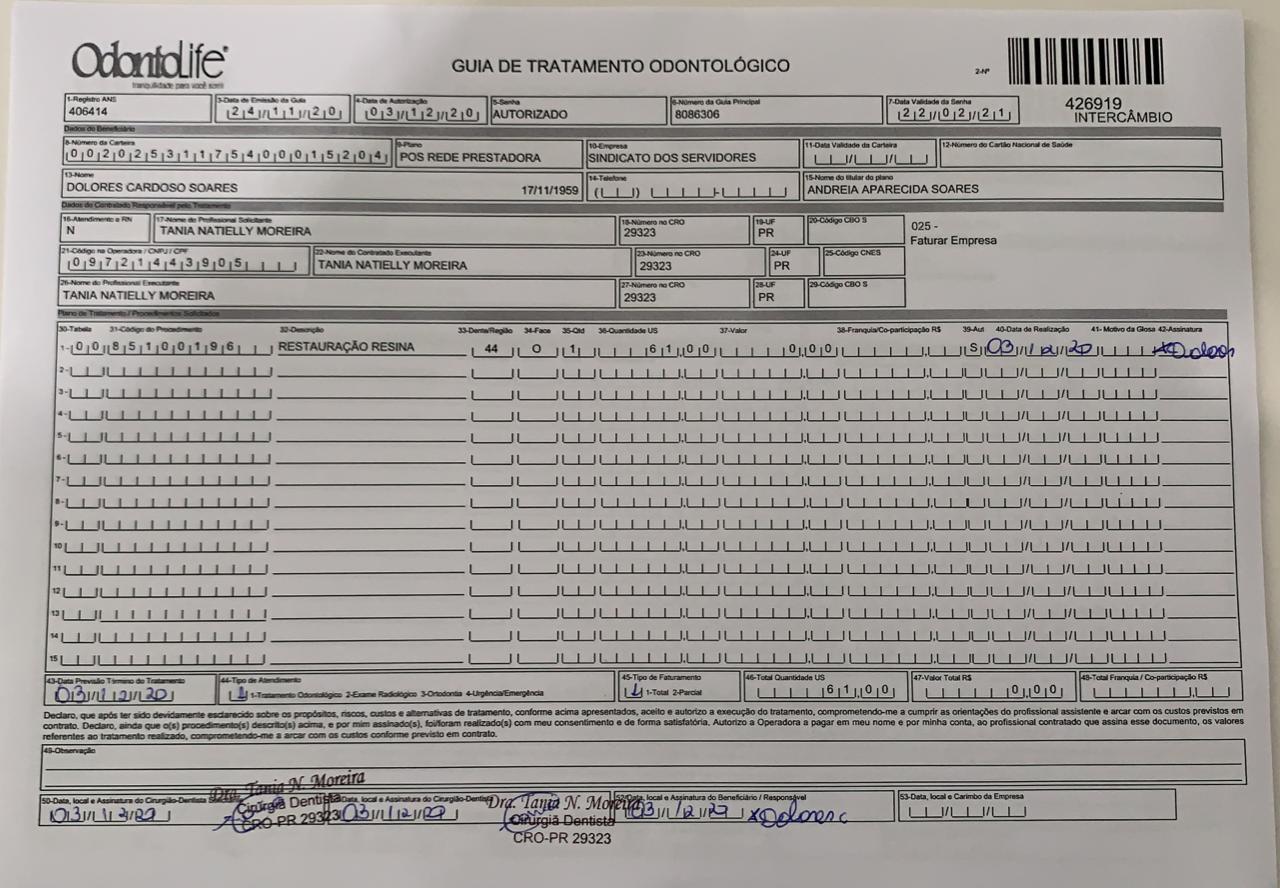 OdontoLife®
tranquilidade para você sorrir
GUIA DE TRATAMENTO ODONTOLÓGICO
2-Nº
426919
INTERCÂMBIO
1-Registro ANS 3-Data de Emissão da Guia 4-Data de Autorização 5-Senha 6-Número da Guia Principal 7-Data Validade da Senha
406414 24/11/20 03/12/20 AUTORIZADO 8086306 22/02/21
Dados do Beneficiário
8-Número da Carteira 9-Plano 10-Empresa 11-Data Validade da Carteira 12-Número do Cartão Nacional de Saúde
00202531175400015204 POS REDE PRESTADORA SINDICATO DOS SERVIDORES
13-Nome 14-Telefone 15-Nome do titular do plano
DOLORES CARDOSO SOARES 17/11/1959 ANDREIA APARECIDA SOARES
Dados do Contratado Responsável pelo Tratamento
16-Atendimento a RN 17-Nome do Profissional Solicitante 18-Número no CRO 19-UF 20-Código CBO S
N TANIA NATIELLY MOREIRA 29323 PR
025 -
Faturar Empresa
21-Código na Operadora / CNPJ / CPF 22-Nome do Contratado Executante 23-Número no CRO 24-UF 25-Código CNES
09721443905 TANIA NATIELLY MOREIRA 29323 PR
26-Nome do Profissional Executante 27-Número no CRO 28-UF 29-Código CBO S
TANIA NATIELLY MOREIRA 29323 PR
Plano de Tratamento / Procedimentos Solicitados
30-Tabela 31-Código do Procedimento 32-Descrição 33-Dente/Região 34-Face 35-Qtd 36-Quantidade US 37-Valor 38-Franquia/Co-participação R$ 39-Aut 40-Data de Realização 41- Motivo da Glosa 42-Assinatura
1- 00 85100196 RESTAURAÇÃO RESINA 44 O 1 61,00 0,00 S 03/12/20 Dolores
2-
3-
4-
5-
6-
7-
8-
9-
10
11
12
13
14
15
43-Data Previsão Término do Tratamento 44-Tipo de Atendimento 45-Tipo de Faturamento 46-Total Quantidade US 47-Valor Total R$ 48-Total Franquia / Co-participação R$
03/12/20 1 1-Tratamento Odontológico 2-Exame Radiológico 3-Ortodontia 4-Urgência/Emergência 1 1-Total 2-Parcial 61,00 0,00
Declaro, que após ter sido devidamente esclarecido sobre os propósitos, riscos, custos e alternativas de tratamento, conforme acima apresentados, aceito e autorizo a execução do tratamento, comprometendo-me a cumprir as orientações do profissional assistente e arcar com os custos previstos em
contrato. Declaro, ainda que o(s) procedimento(s) descrito(s) acima, e por mim assinado(s), foi/foram realizado(s) com meu consentimento e de forma satisfatória. Autorizo a Operadora a pagar em meu nome e por minha conta, ao profissional contratado que assina esse documento, os valores
referentes ao tratamento realizado, comprometendo-me a arcar com os custos conforme previsto em contrato.
49-Observação
50-Data, local e Assinatura do Cirurgião-Dentista Data, local e Assinatura do Cirurgião-Dentista Data, local e Assinatura do Beneficiário / Responsável 53-Data, local e Carimbo da Empresa
03/12/20 03/12/20 03/12/20 Dolores C
Dra. Tania N. Moreira
Cirurgiã Dentista
CRO-PR 29323
Dra. Tania N. Moreira
Cirurgiã Dentista
CRO-PR 29323